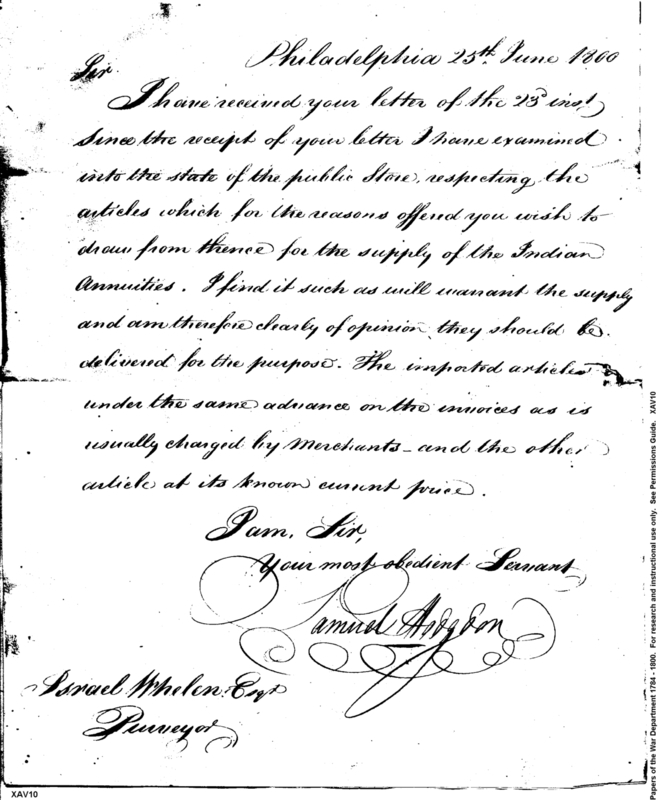 Philadelphia 25th June 1800
Sir
I have received your letter of the 23d inst,
Since the receipt of your letter I have examined
into the state of the public Store, respecting the
articles which for the reasons offered you wish to
draw from thence for the supply of the Indian
Annuities. I find it such as will warrant the supply
and am therefore clearly of opinion they should be
delivered for the purpose. The imported articles
under the same advance on the invoices as is
usually charged by Merchants - and the other
article at its known current price.
I am, Sir,
Your most obedient Servant
Samuel Hodgdon
Israel Whelen Esqr
Purveyor
XAV10
Papers of the War Department 1784 - 1800. For research and instructional use only. See Permissions Guide. XAV10